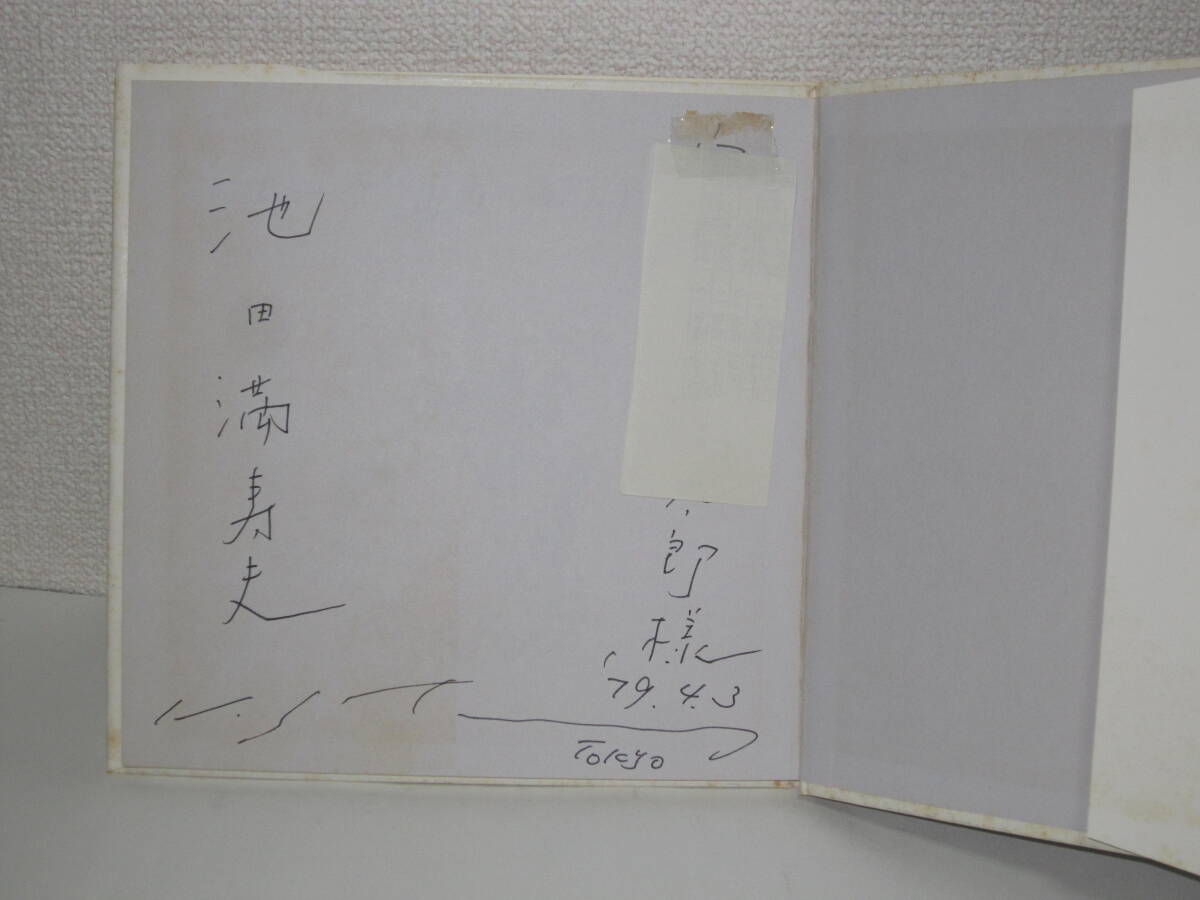 郎様
'79.4.3
Tokyo
池田満寿夫